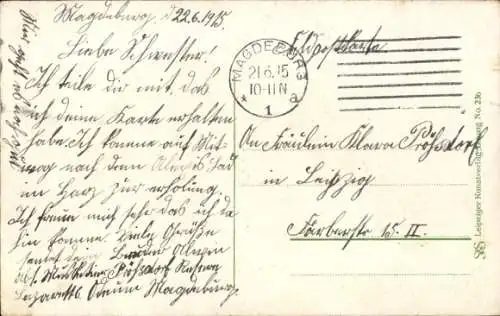 Magdeburg, d 22.6.1915.
Liebe Schwester!
Ich teile dir mit, das
ich deine Karte erhalten
habe. Ich komme auf Mit-
woag nach dem Bad
im Harz zur erholung.
Ich freue mich sehr das ich da
hin komme. Viele Grüße
sendet dein Bruder
Abt. Musketier Pößsdorf
Lazarett Odeum Magdeburg.
Wie geht es
Feldpostkarte
MAGDEBURG
21.6.15
10-11 N
* 1 a
An Fräulein Klara Pößsdorf
in Leipzig
Färberstr 15. II.
Leipziger Kunstverlag No. 23b